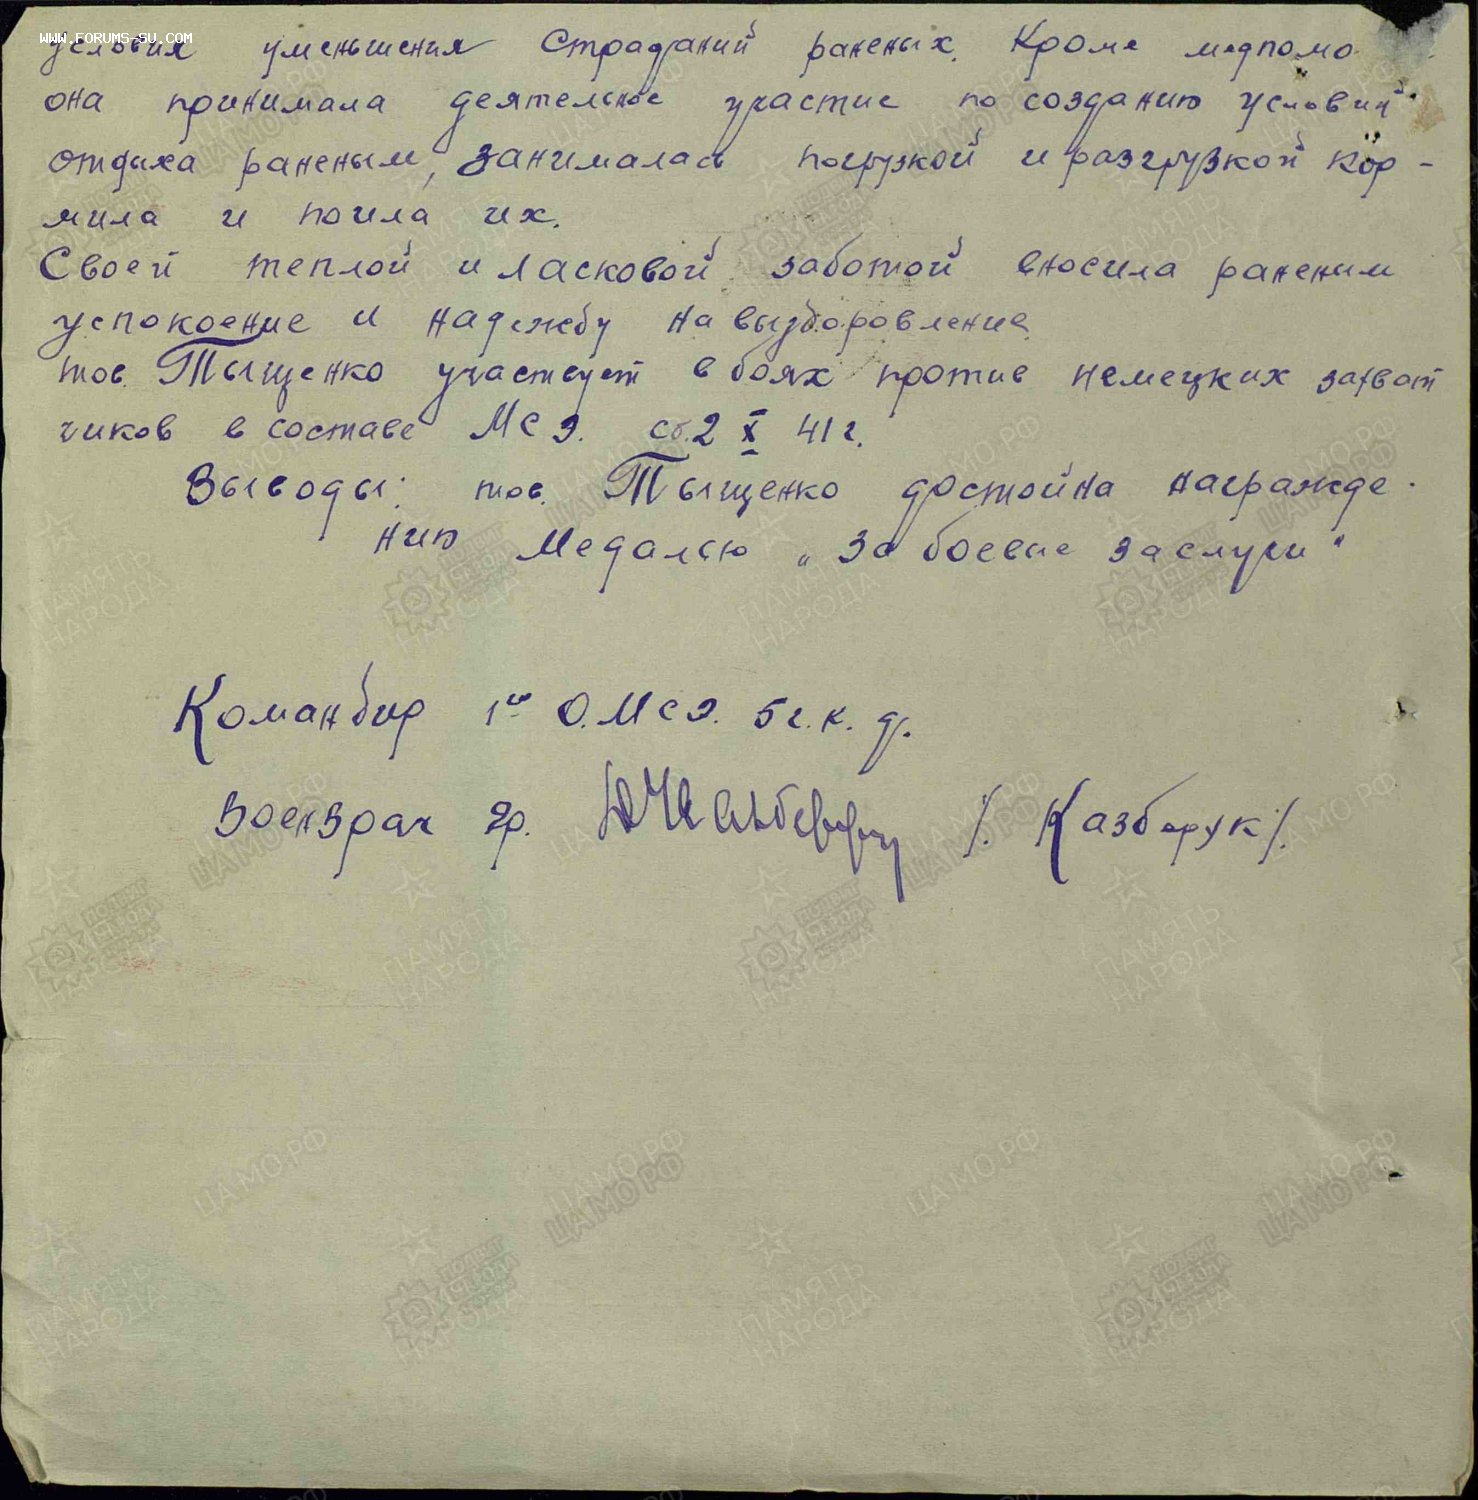 WWW.FORUMS-SU.COM
условия уменьшения страданий раненых. Кроме медпомо
она принимала деятельное участие по созданию условий
отдыха раненым, занималась погрузкой и разгрузкой кор-
мила и поила их.
Своей теплой и ласковой заботой вносила раненим
успокоение и надежду на выздоровление
тов. Тыщенко участвует в боях против немецких захват
чиков в составе МСЭ. с 2 X 41 г.
Выводы: тов. Тыщенко достойна награжде-
нию Медалью „За боевые заслуги"
Командир 1го О.МСЭ. 5 г.к.д.
Военврач 2р. /. Казберук/.